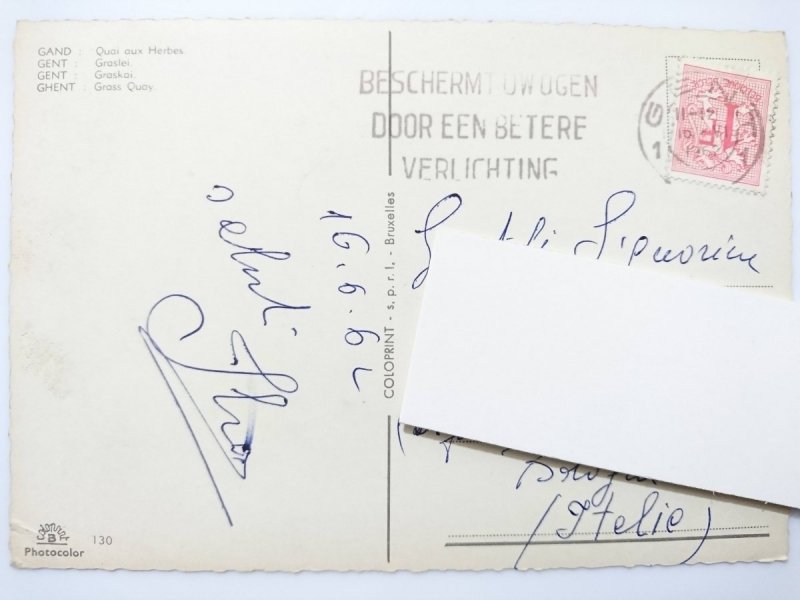 GAND : Quai aux Herbes.
GENT : Graslei.
GENT : Graskai.
GHENT : Grass Quay.
BESCHERMT UW OGEN
DOOR EEN BETERE
VERLICHTING
GENT
11-12
1 1
1F
Saluti
16.6.62
COLOPRINT - s.p.r.l. - Bruxelles
Signorina
Bologna
(Italie)
B
Photocolor
130